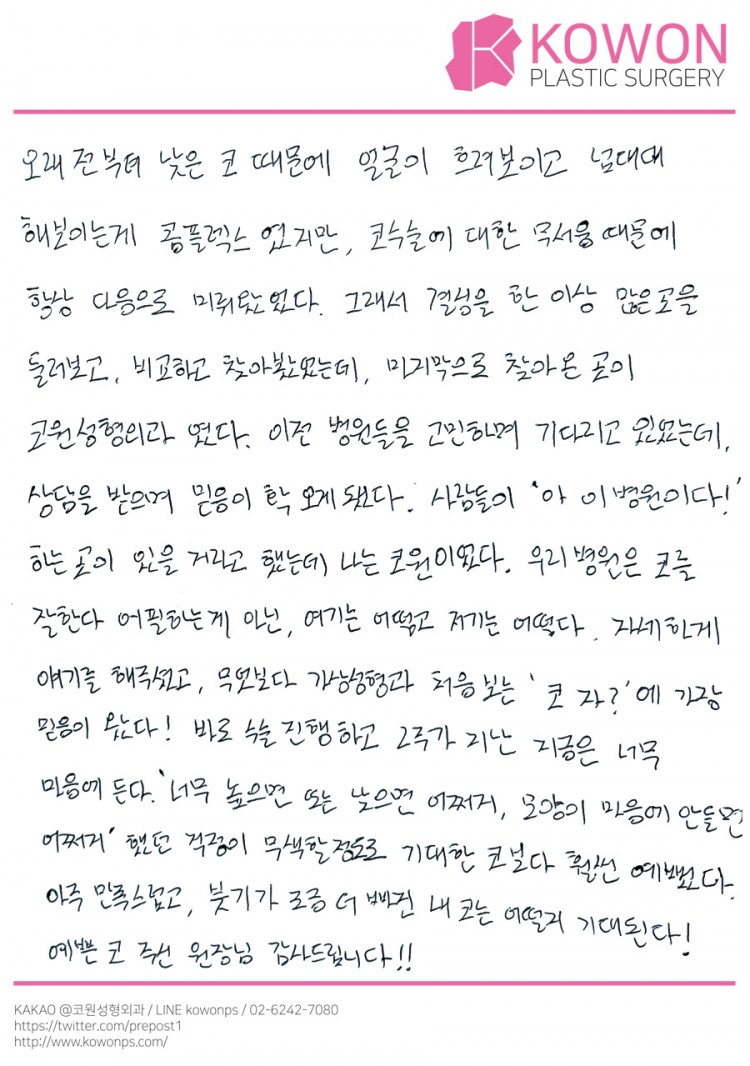 KOWON
PLASTIC SURGERY
오래 전부터 낮은 코 때문에 얼굴이 흐려보이고 넙대대
해보이는게 콤플렉스 였지만, 코수술에 대한 무서움 때문에
항상 다음으로 미뤄왔었다. 그래서 결심을 한 이상 많은곳을
둘러보고, 비교하고 찾아봤었는데, 마지막으로 찾아온 곳이
코원성형외과 였다. 이전 병원들을 고민하며 기다리고 있었는데,
상담을 받으며 믿음이 확 오게 됐다. 사람들이 '아 이병원이다!'
하는 곳이 있을 거라고 했는데 나는 코원이었다. 우리병원은 코를
잘한다 어필하는게 아닌, 여기는 어떻고 저기는 어떻다. 자세하게
얘기를 해주셨고, 무엇보다 가상성형과 처음 보는 '코 자?'에 가장
믿음이 왔다! 바로 수술 진행하고 2주가 지난 지금은 너무
마음에 든다. '너무 높으면 또는 낮으면 어쩌지, 모양이 마음에 안들면
어쩌지' 했던 걱정이 무색할정도로 기대한 코보다 훨씬 예뻤다.
아주 만족스럽고, 붓기가 조금 더 빠진 내 코는 어떨지 기대된다!
예쁜 코 주신 원장님 감사드립니다!!
KAKAO @코원성형외과 / LINE kowonps / 02-6242-7080
https://twitter.com/prepost1
http://www.kowonps.com/